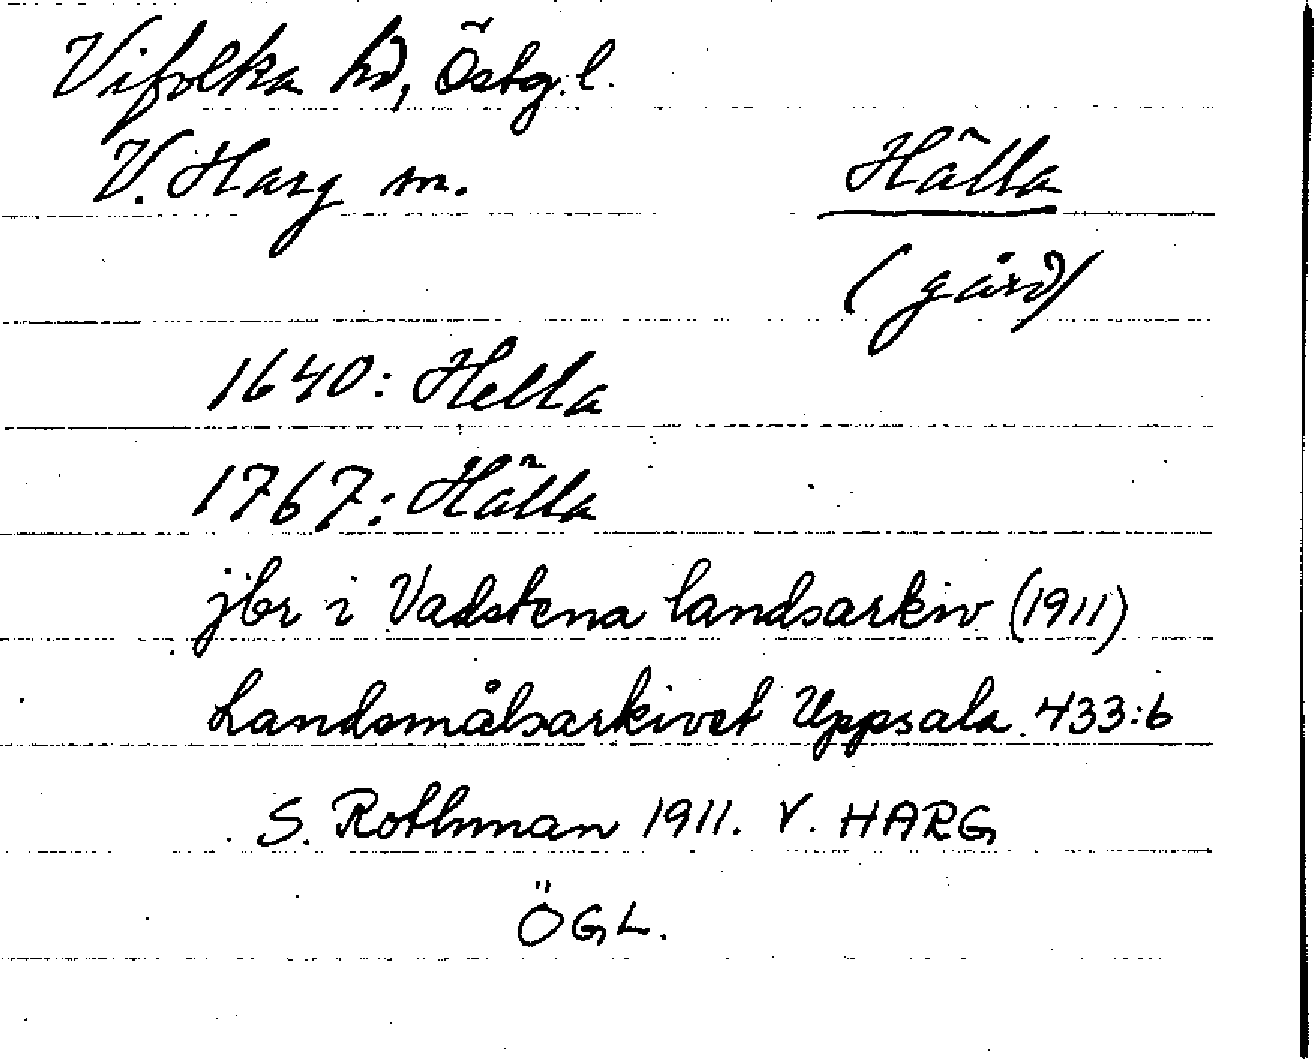 Vifolka hd, Östg. l.
V. Harg sn. Hälla
(gård)
1640: Hella
1767: Hälla
jbr i Vadstena landsarkiv (1911)
Landsmålsarkivet Uppsala 433:6
S. Rothman 1911. V. HARG
ÖGL.